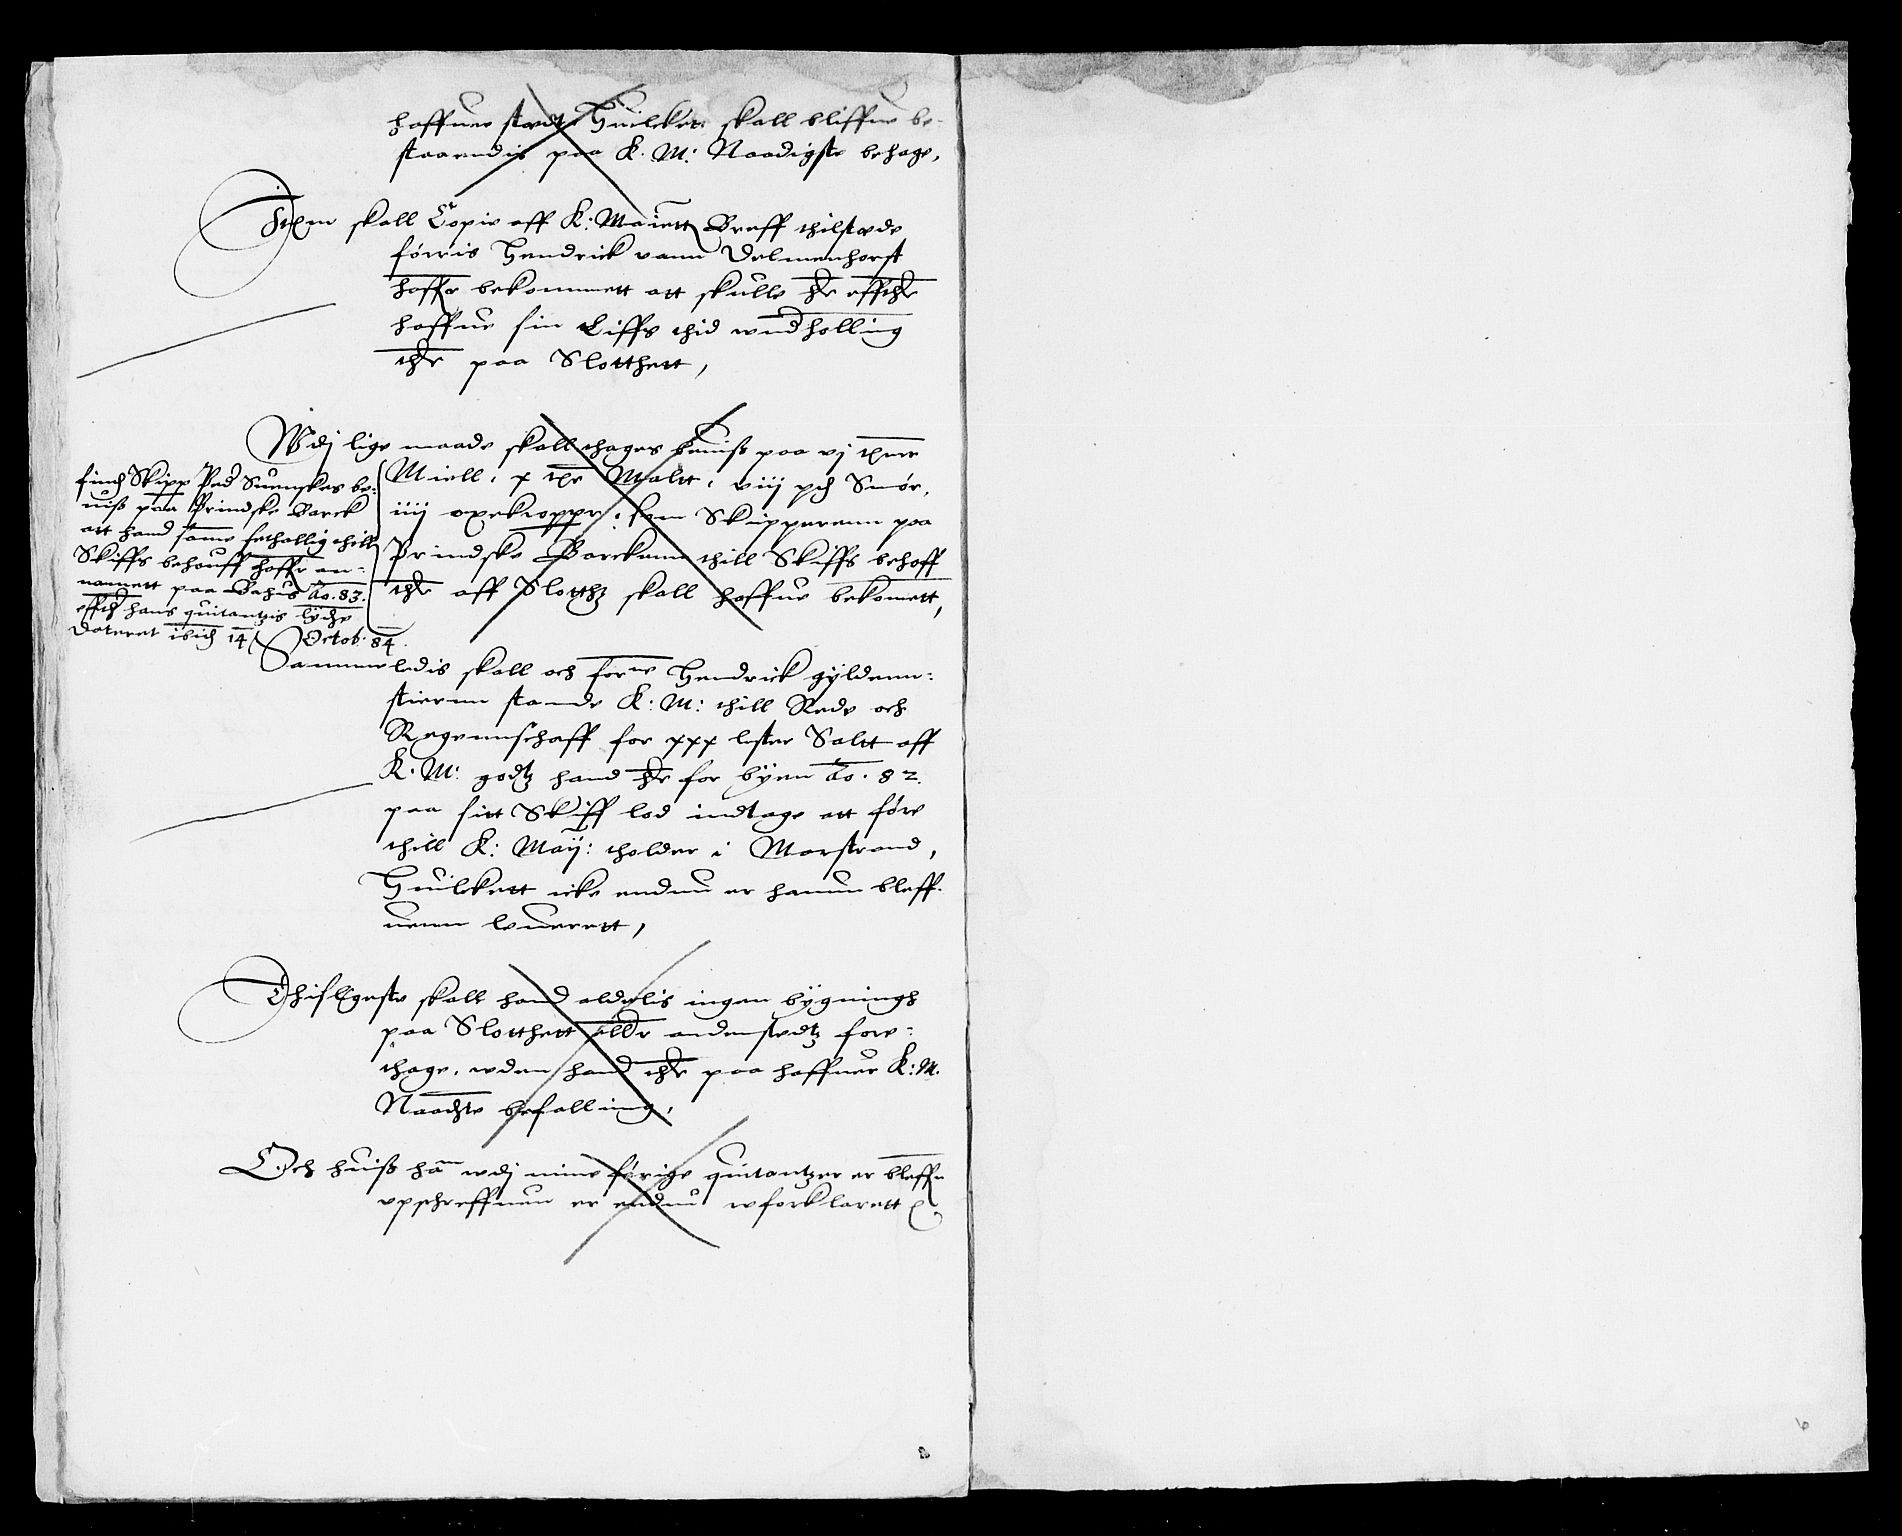 haffuer stedt Huilckett skall bliffue be-
staaendis paa K. M: Naadigste behage,
Item skall Copie aff K: Maiett Breff thilstede
førris Hendrick vann Delmenhorst
haffr bekommett att skulle hr effthr
haffue sin Liffs thid wndholling
thr paa Slotthett,
Wdj lige maade skall thages beuiiss paa vj thnne
Miell, x thr Maltt, viij pd Smør,
iiij oxekropper, som Skipperenn paa
Prindske Barckenn thill Skiffs behoff
thr aff Slotthz skall haffue bekomett,
find Skipp Ped Suenskes be-
uiss paa Prindske Barck
att hand samme fethallig thill
Skiffs behouff haffr an-
namett paa Bahus Ao. 83.
effth hans quitantzis lydhe
Dateret ibid 14 Octob: 84.
Sammeledis skall och forne Hendrick gyldenn-
stiernn stande K: M: thill Rede och
Regennschaff for xxx lester Saltt aff
K. M: godtz hand hr for byen Ao. 82.
paa sitt Skiff lod indtage att føre
thill K: Maij: tholder i Marstrand,
Huilckett icke endnu er hanum bleff-
uenn leuerett,
Thisligeste skall hand aldelis ingen bygningh
paa Slotthett ellr andenstedtz fore-
thage, wden hand thr paa haffuer K: M.
Naadste befalling,
Och huiss han wdj mine førige quitantzer er bleffn
opschreffuen er endnu wforklarett